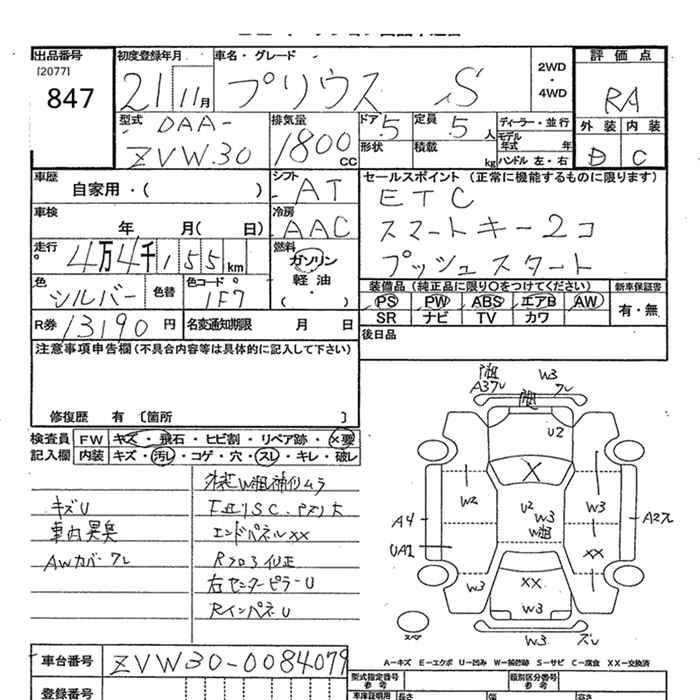 出品番号
[2077]
847
初度登録年月
21 11月
車名・グレード
プリウス S
2WD
・
4WD
評価点
RA
外装 内装
D C
型式
DAA-
ZVW30
排気量
1800 CC
ドア 5
定員 5 人
形状
積載 kg
ディーラー・並行
モデル年式 年
ハンドル 左・右
車歴
自家用・( )
シフト
AT
車検
年 月( 日)
冷房
AAC
走行
4万4千155km
燃料
ガソリン
軽油
色
シルバー
色替
色コード
1F7
R券 13190円
名変通知期限 月 日
セールスポイント (正常に機能するものに限ります)
ETC
スマートキー2コ
プッシュスタート
装備品 (純正品に限り○をつけてください)
PS PW ABS エアB AW
SR ナビ TV カワ
新車保証書
有・無
後日品
注意事項申告欄(不具合内容等は具体的に記入して下さい)
修復歴 有 〔箇所 〕
検査員 FW キズ・飛石・ヒビ割・リペア跡・×要
記入欄 内装 キズ・汚レ・コゲ・穴・スレ・キレ・破レ
キズU
車内異臭
AWカバーワレ
エンドパネルXX
Rフロア修正
右センターピラーU
RインパネU
A37レ
W3
ワレ
U2
W2
U2
W3
W3
A4
UA1
A2
XX
W3
XX
W3
W3
ズレ
スペア
A-キズ E-エクボ U-凹み W-補修跡 S-サビ C-腐食 XX-交換済
車台番号
ZVW30-0084079
登録番号
型式指定番号
参考
類別区分番号
参考
車庫証明用
参考
長さ
幅
高さ